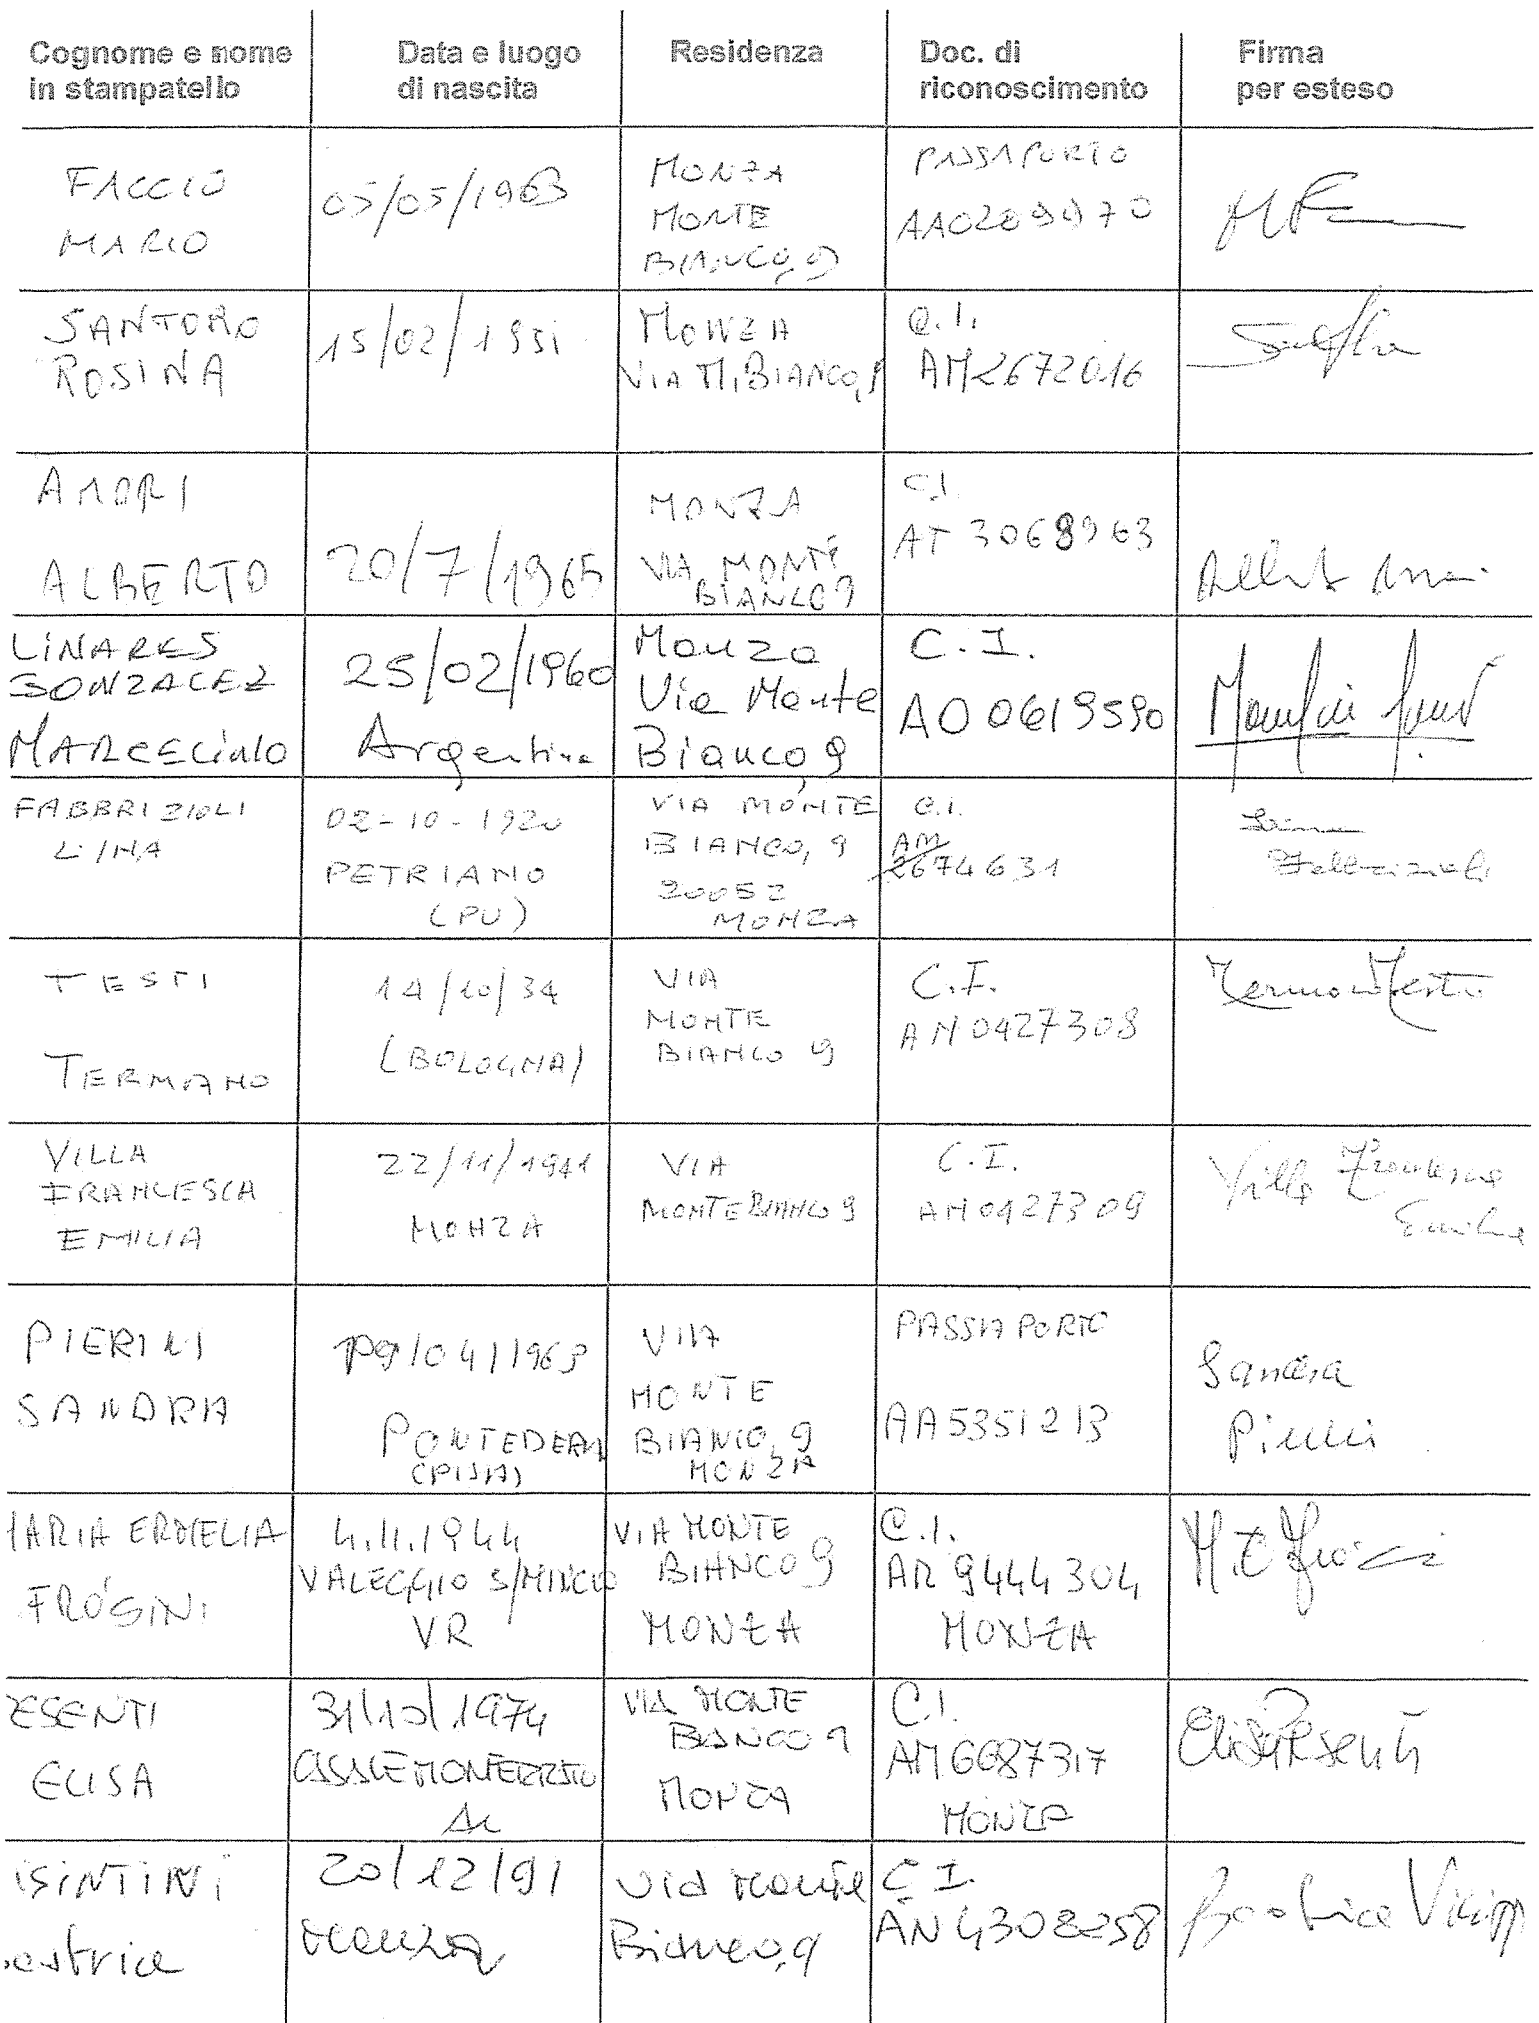 Cognome e nome
in stampatello
Data e luogo
di nascita
Residenza
Doc. di
riconoscimento
Firma
per esteso
FACCIO
MARIO
05/05/1963
MONZA
MONTE
BIANCO, 9
PASSAPORTO
SANTORO
ROSINA
15/02/1951
MONZA
VIA M. BIANCO, 9
C.I.
AM2672016
AMORI
ALBERTO
20/7/1965
MONZA
VIA MONTE
BIANCO 9
C.I.
AT 3068963
LINARES
GONZALEZ
MARCELINO
25/02/1960
Argentina
Monza
Via Monte
Bianco, 9
C.I.
AO 0619590
FABBRIZIOLI
LINA
02-10-1920
PETRIANO
(PU)
VIA MONTE
BIANCO, 9
20052
MONZA
C.I.
AM
2674631
Lina
Fabbrizioli
TESTI
TERMANO
14/10/34
(BOLOGNA)
VIA
MONTE
BIANCO 9
C.I.
AN 0427308
Termano Testi
VILLA
FRANCESCA
EMILIA
22/11/1941
MONZA
VIA
MONTE BIANCO 9
C.I.
AN 0427309
Villa Francesca
Emilia
PIERINI
SANDRA
/04/1963
PONTEDERA
(PISA)
VIA
MONTE
BIANCO, 9
MONZA
PASSAPORTO
AA5351213
Sandra
Pierini
ARIA ERMELIA
FROSINI
4.11.1944
VALEGGIO S/MINCIO
VR
VIA MONTE
BIANCO 9
MONZA
C.I.
AR 9444304
MONZA
M.E Frosini
ESENTI
ELISA
31/10/1974
CASALE MONFERRATO
AL
VIA MONTE
BIANCO 9
MONZA
C.I.
AM6687317
MONZA
Elisa Pesenti
ISINTINI
eatrice
20/12/91
Monza
Via Monte
Bianco, 9
C.I.
AN 4308258
Beatrice